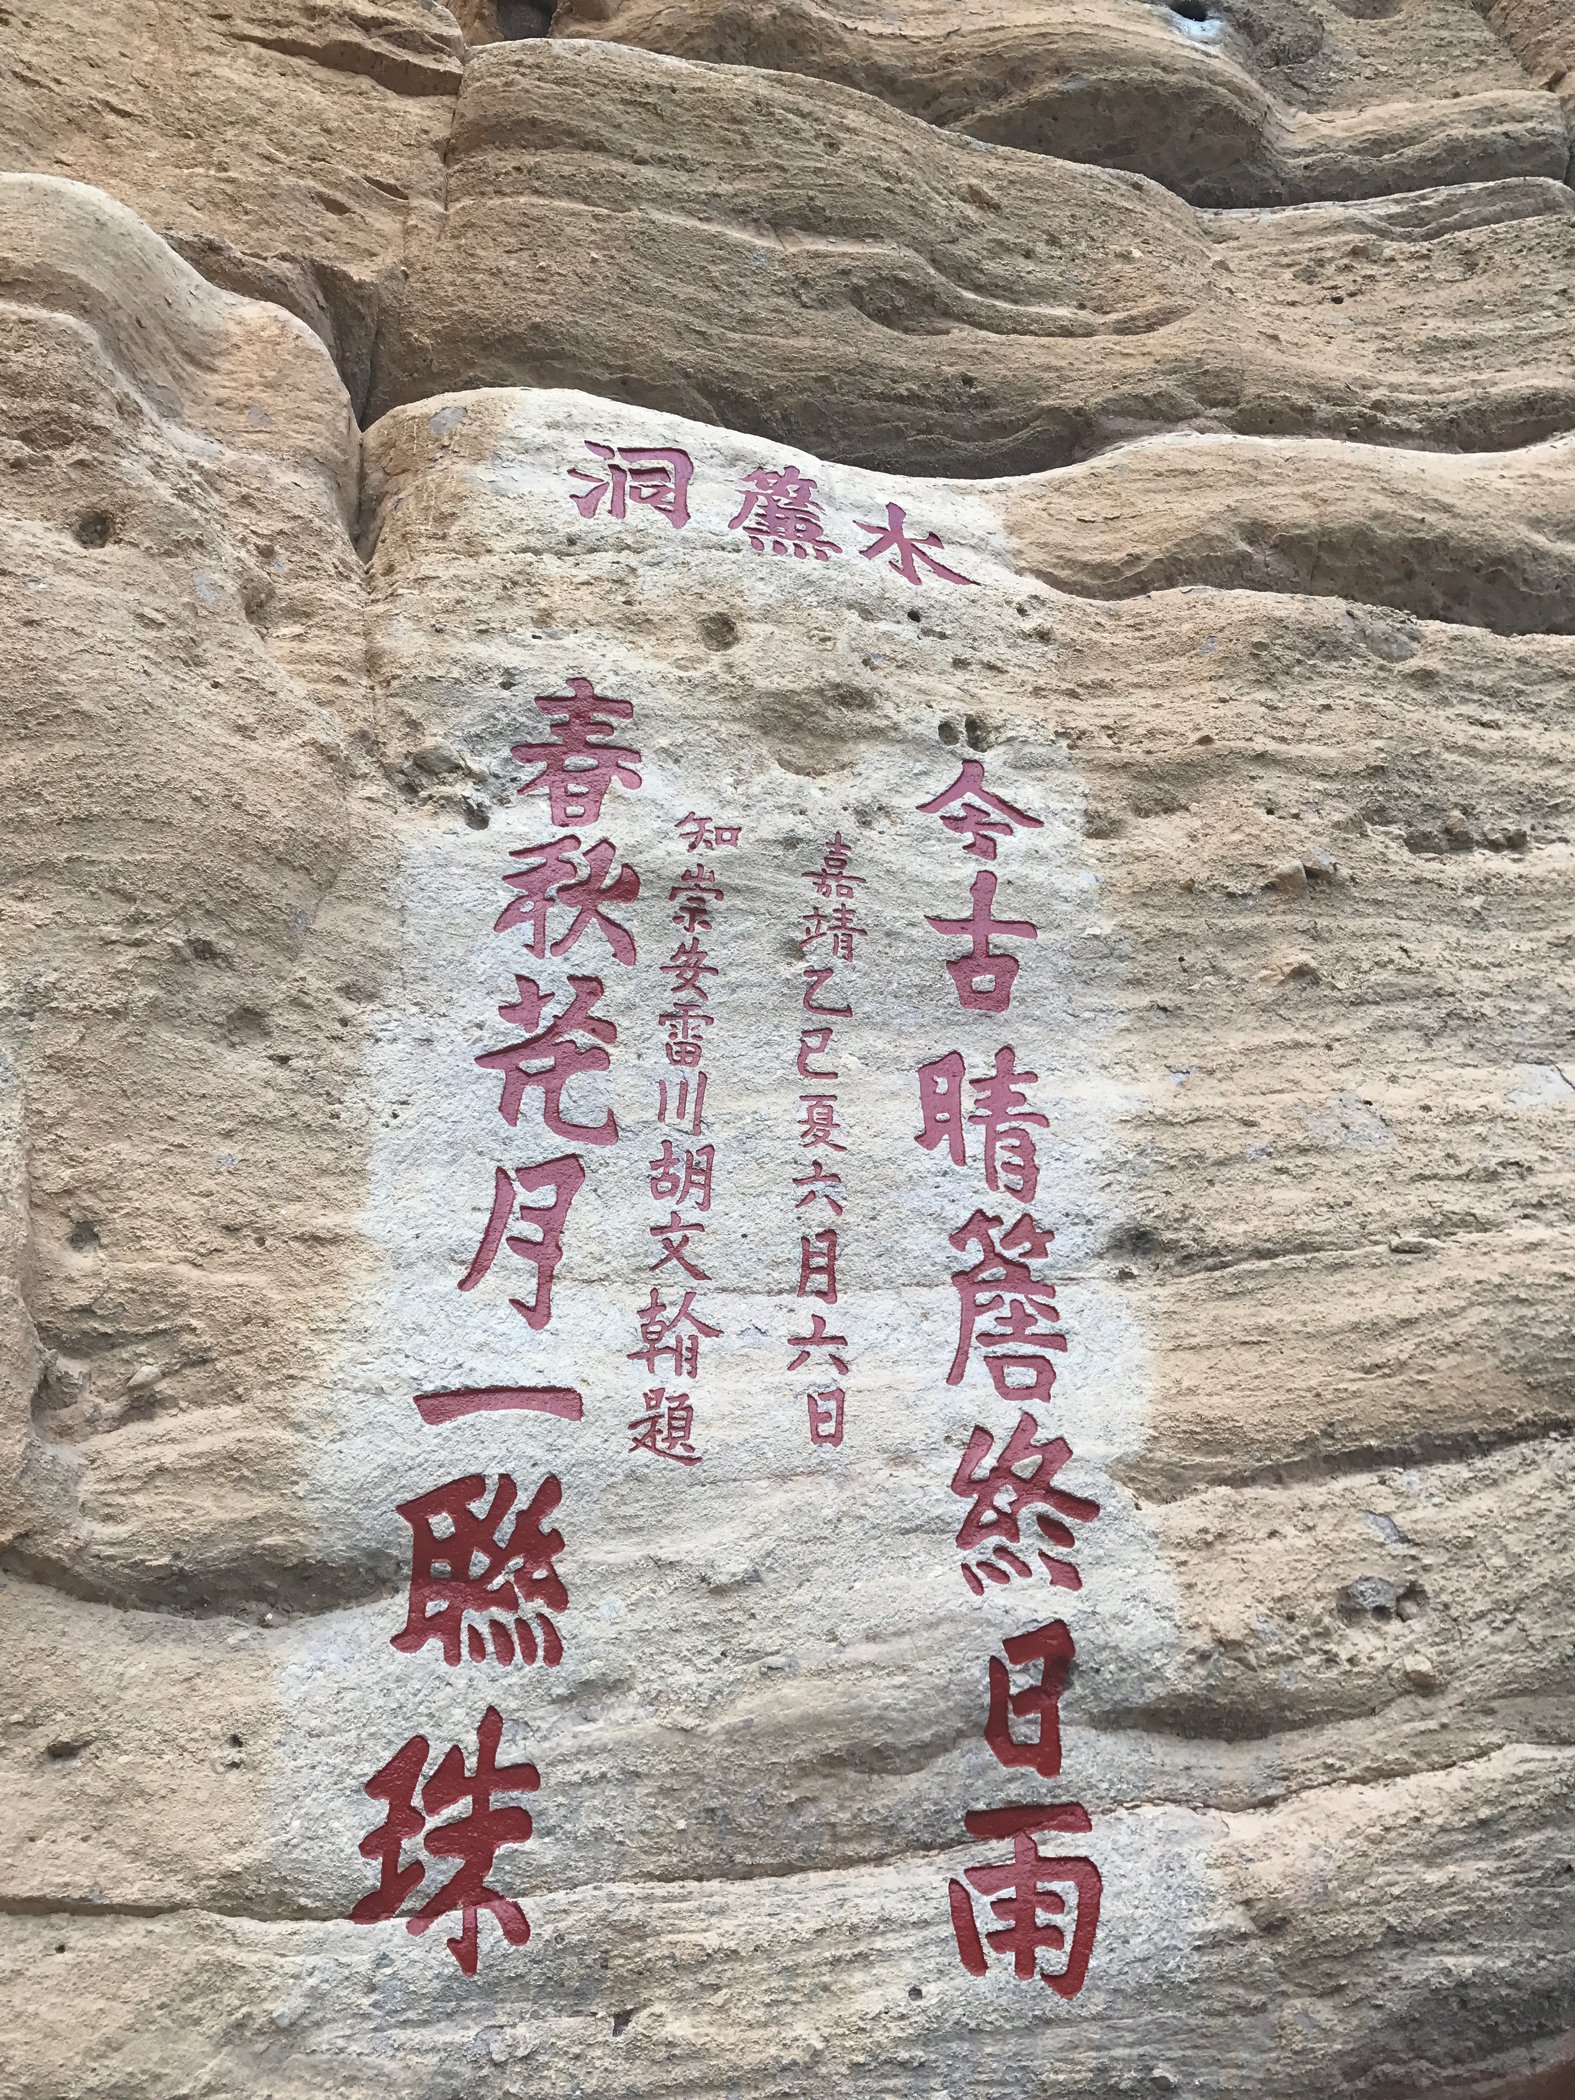 水簾洞
今古晴簷終日雨
嘉靖乙巳夏六月六日
知崇安雷川胡文翰題
春秋花月一聯珠